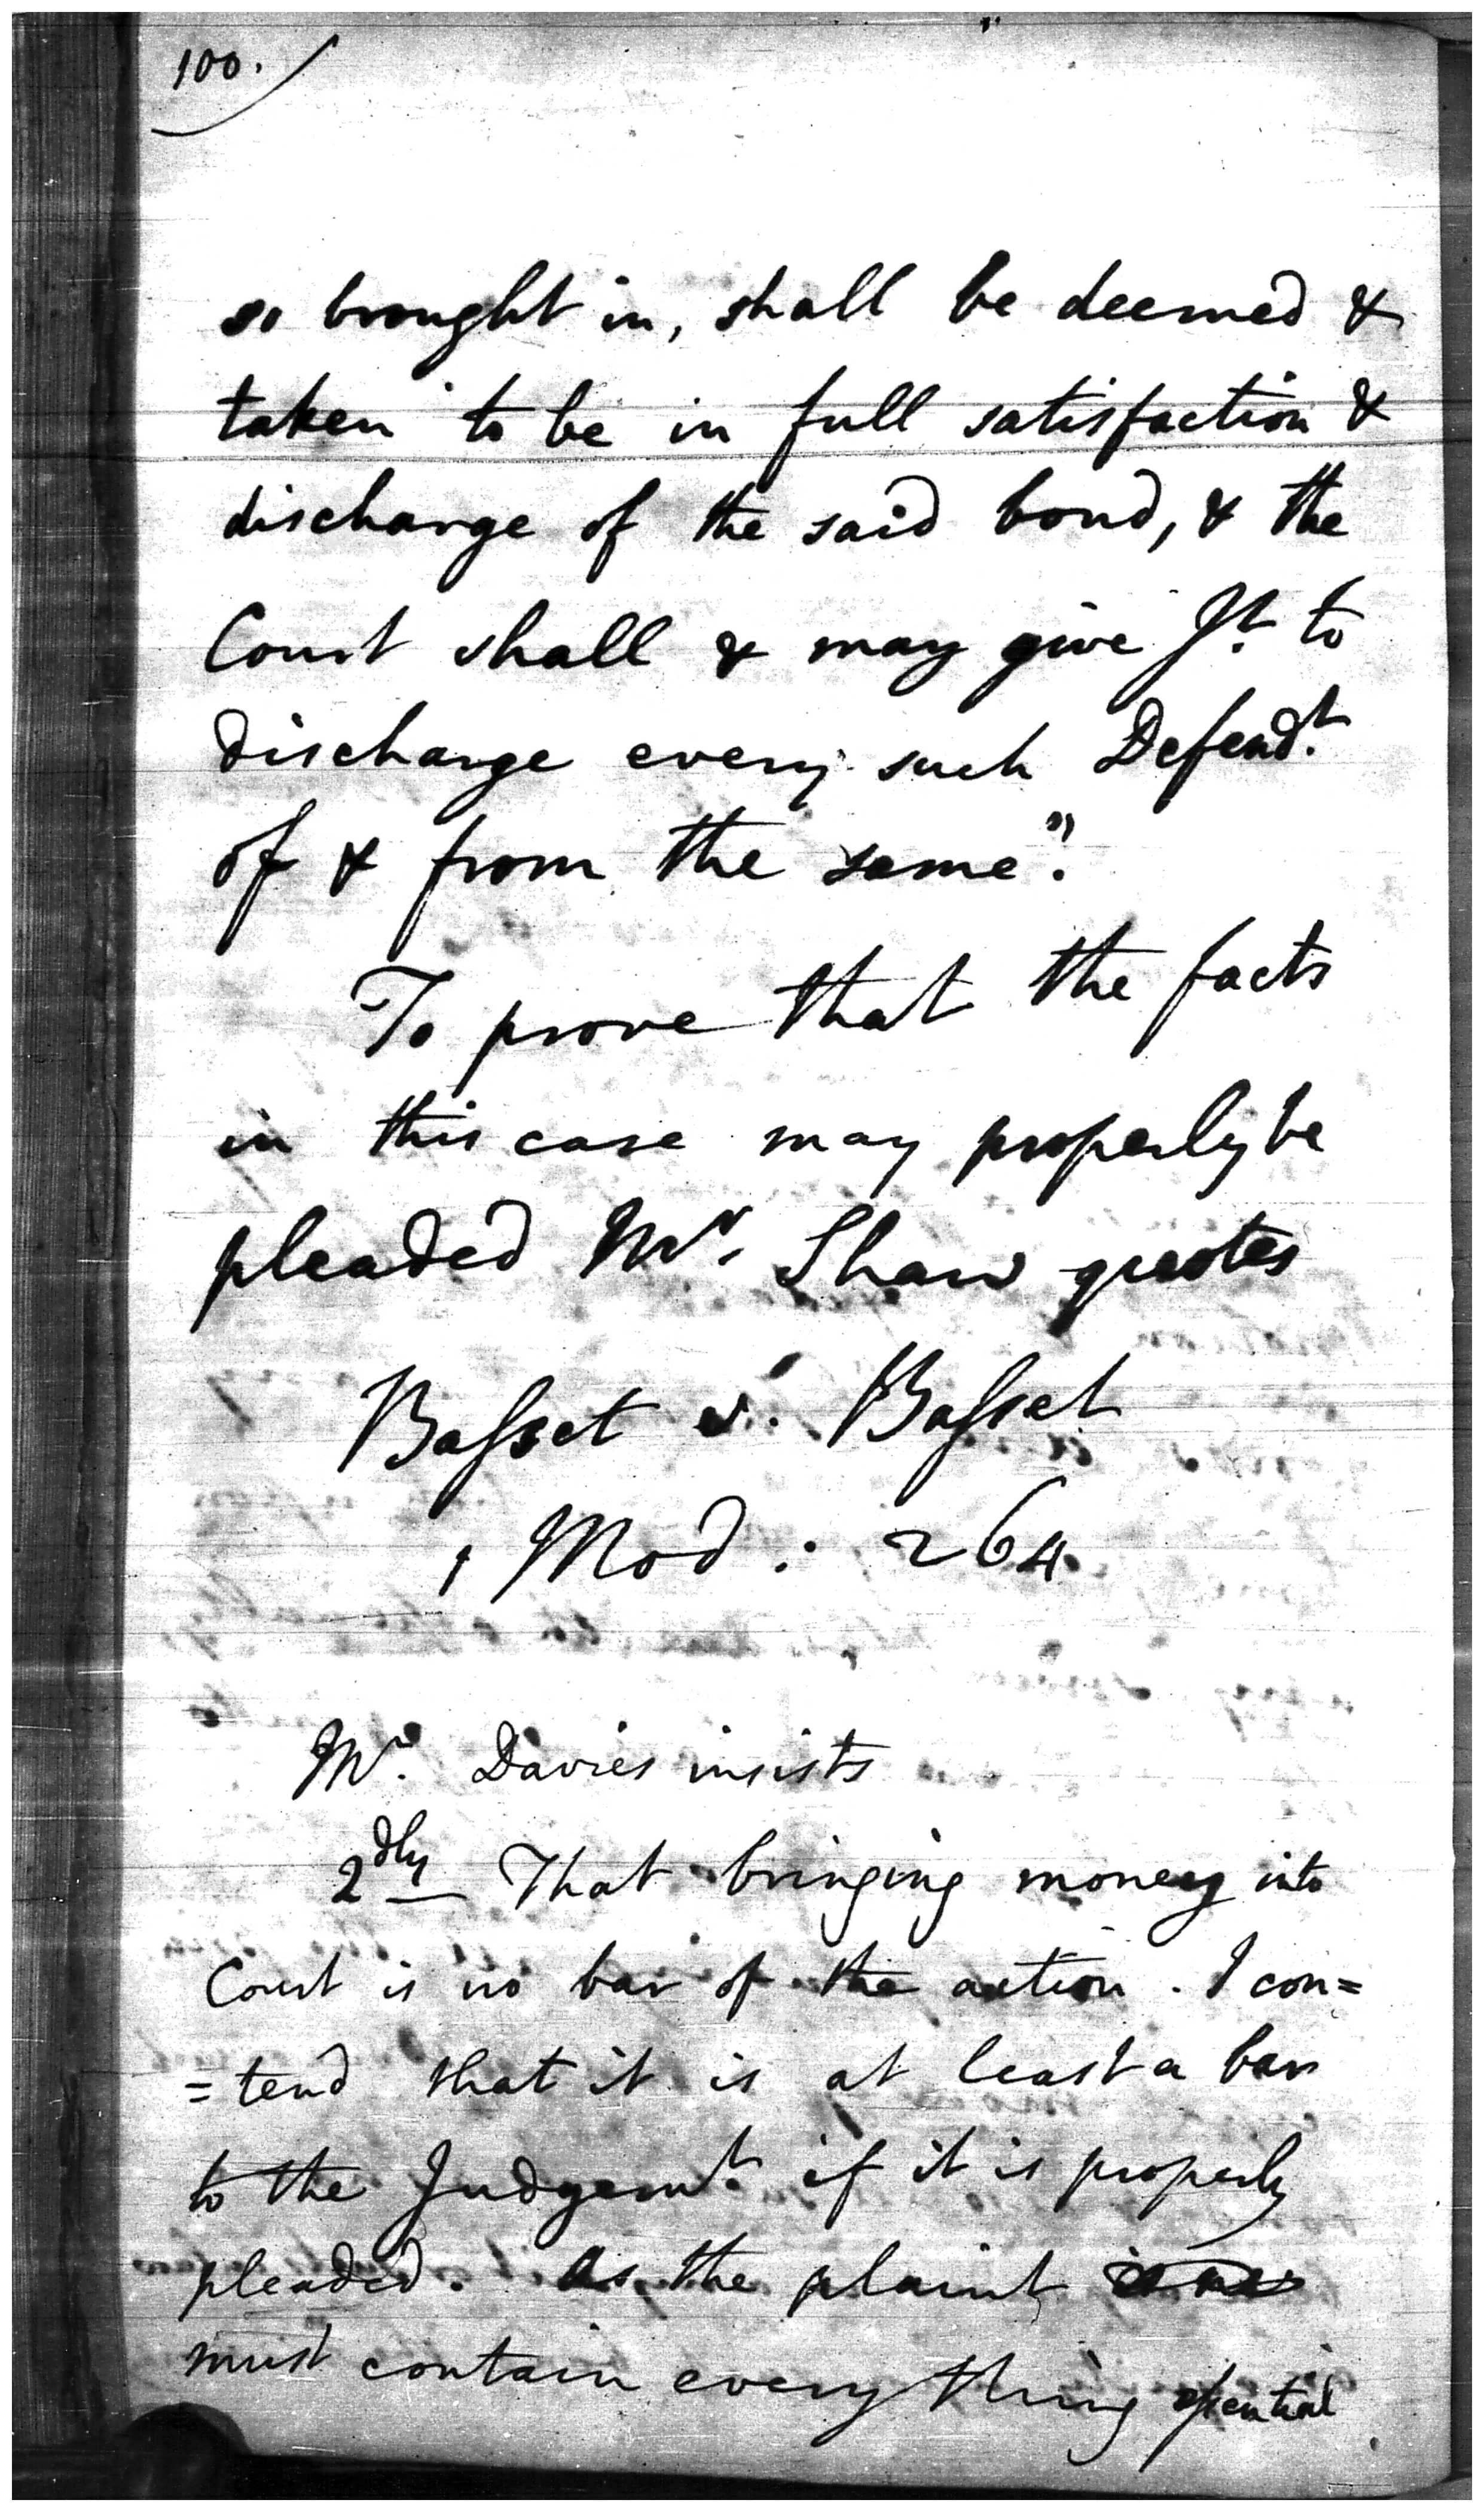 100.
so brought in, shall be deemed &
taken to be in full satisfaction &
discharge of the said bond, & the
Court shall & may give Jt. to
discharge every such Defendt.
of & from the same".
To prove that the facts
in this case may properly be
pleaded Mr. Shaw quotes
Baſset v. Baſset
1 Mod: 264
Mr. Davies insists
2dly That bringing money into
Court is no bar of the action. I con=
=tend that it is at least a bar
to the Judgemt. if it is properly
pleaded. As the plaint
must contain every thing eſsential